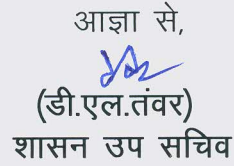 आज्ञा से,
(डी.एल.तंवर)
शासन उप सचिव